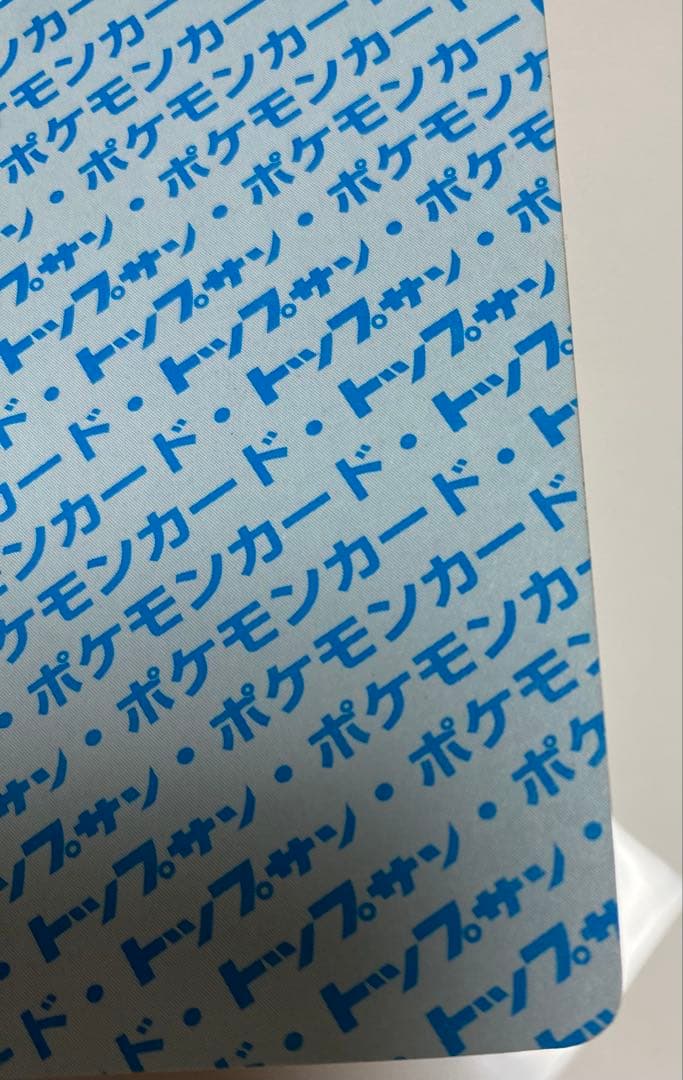 ンカー
ケモンカー
ポケモンカード
ン・ポケモンカード
プサン・ポケモンカード
トップサン・ポケモンカー
ド・トップサン・ポケモンカ
ード・トップサン・ポケモ
カード・トップサン・ポ
ンカード・トップサン
ケモンカード・トップ
ポケモンカード・ト
・ポケモンカード
サン・ポケモンカー
ップサン・ポケモンカ
トップサン・ポケモンカ
・トップサン・ポケモン
ド・トップサン・ポケ
ド・トップサン・
ド・トップサ
ト